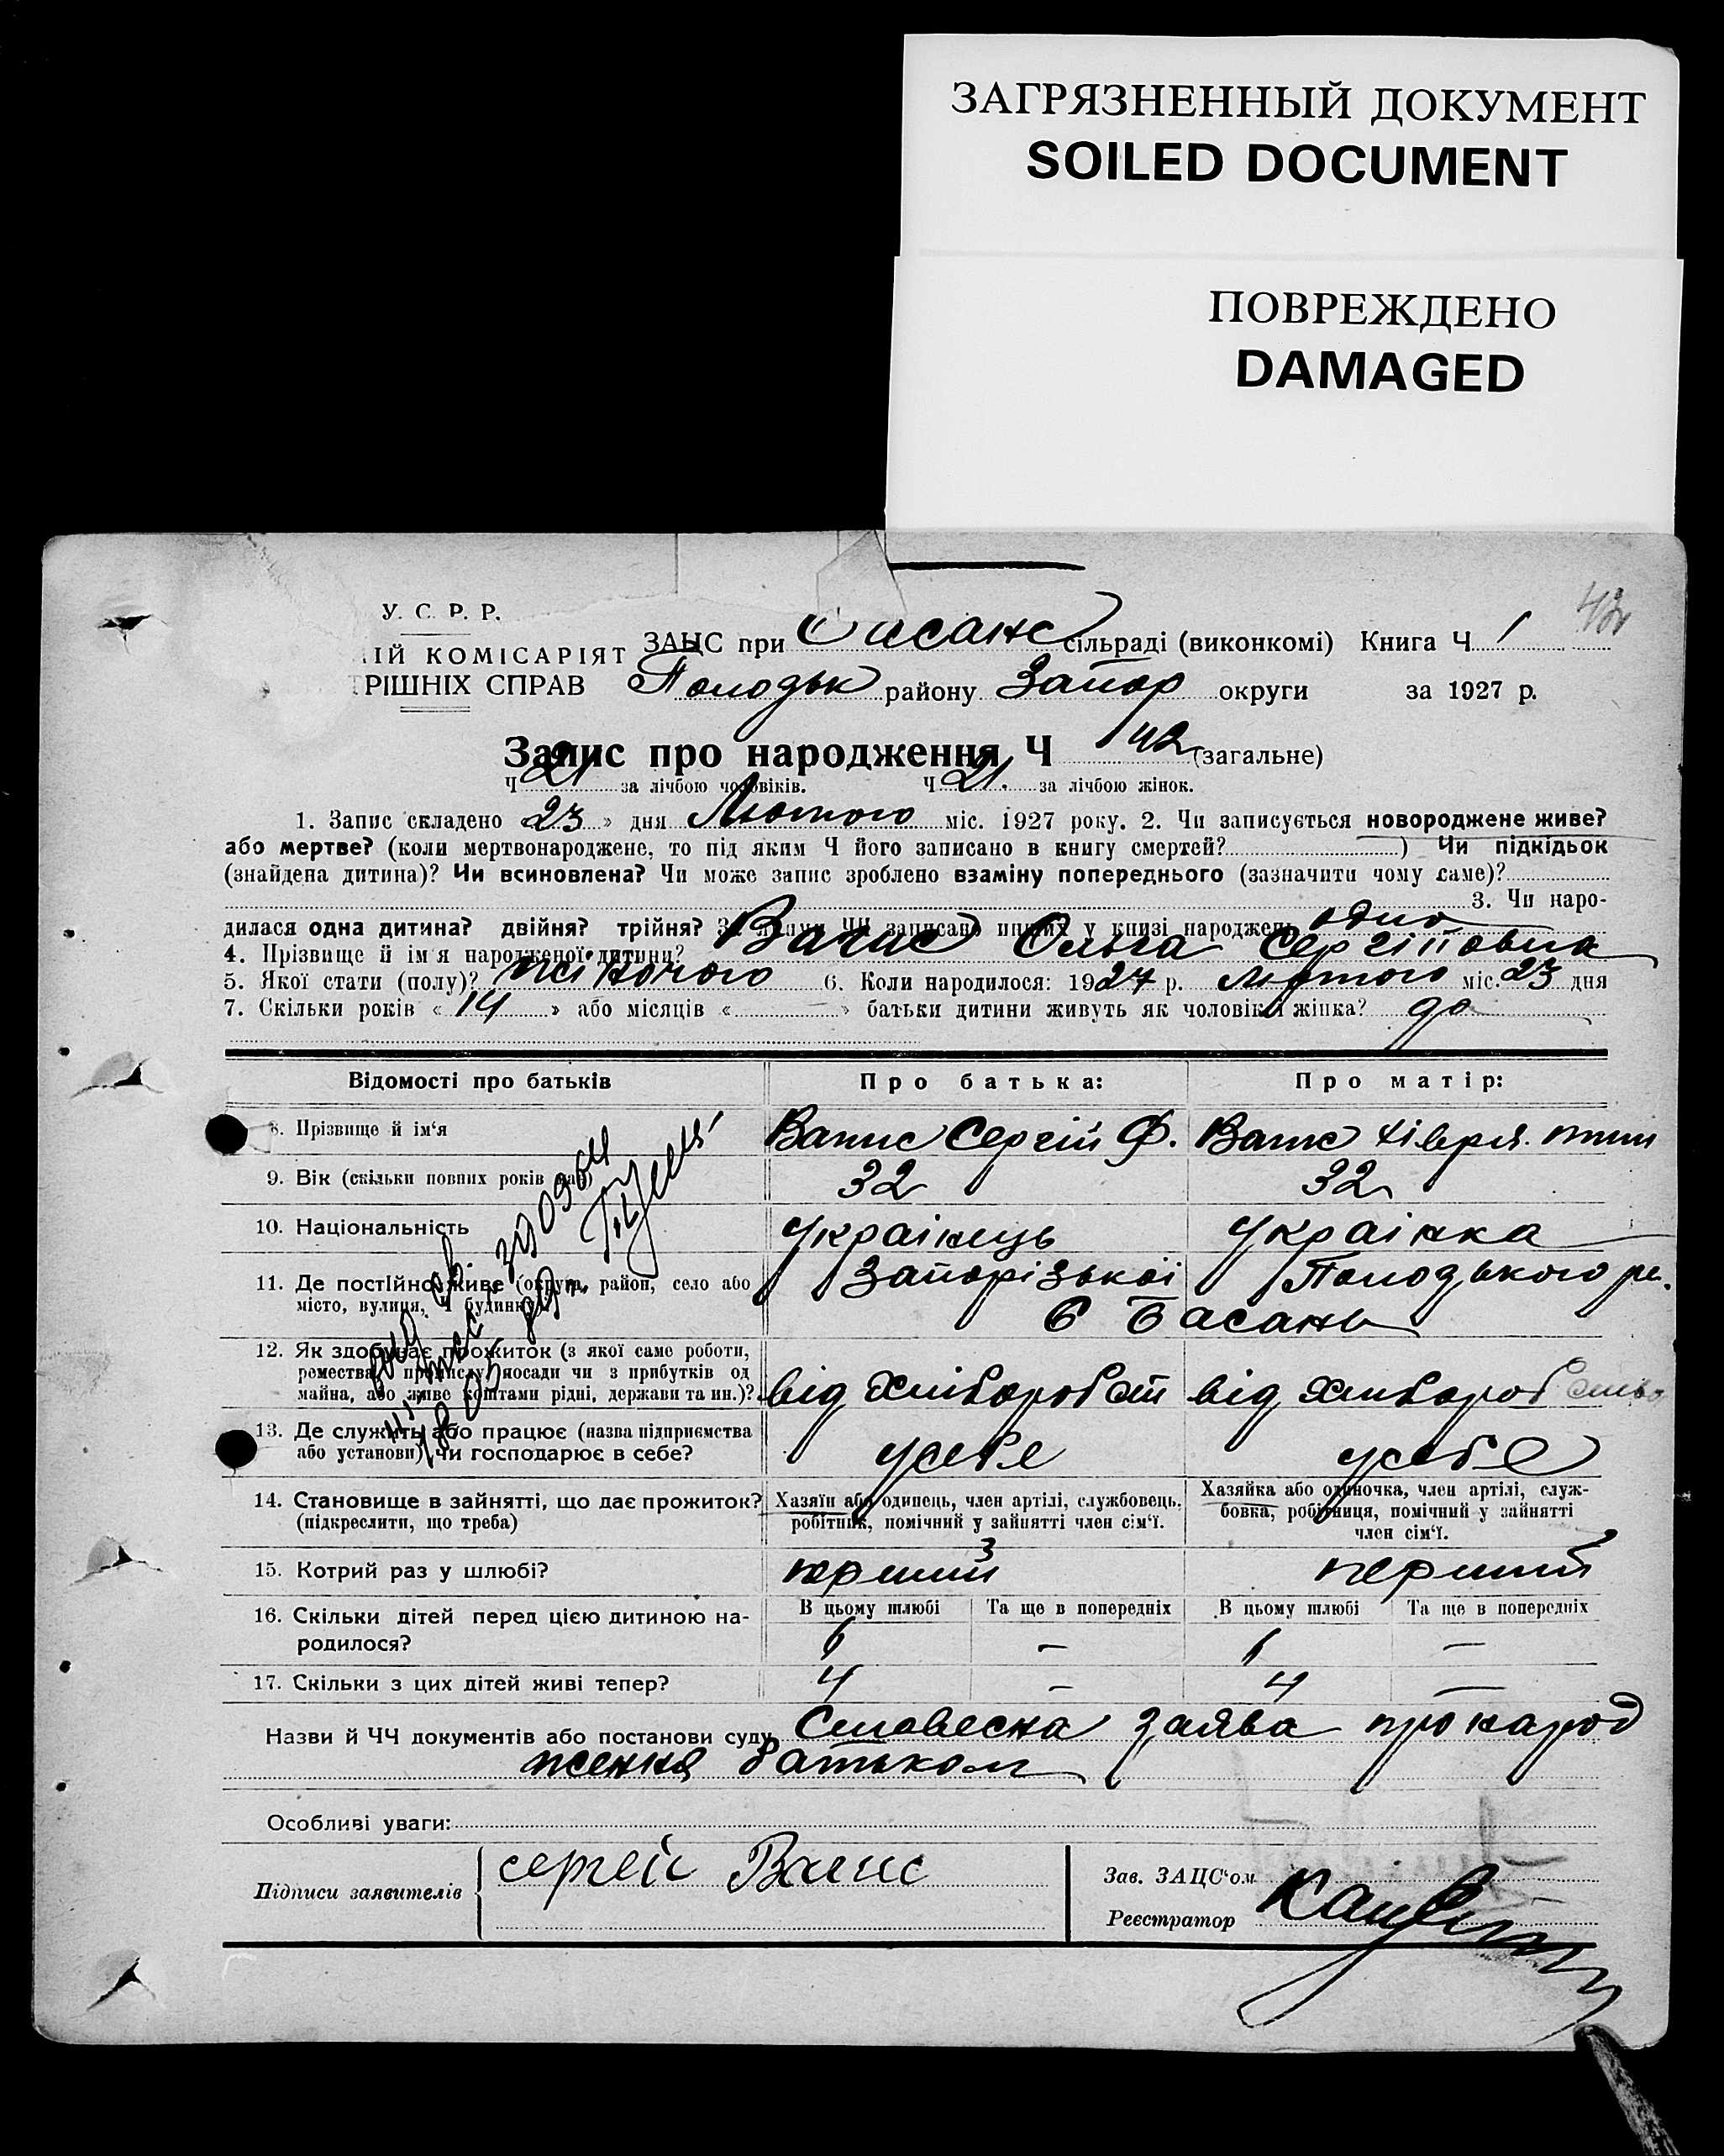 ЗАГРЯЗНЕННЫЙ ДОКУМЕНТ
SOILED DOCUMENT
ПОВРЕЖДЕНО
DAMAGED
У. С. Р. Р.
ІЙ КОМІСАРІЯТ
РІШНІХ СПРАВ
ЗАЦС при сільраді (виконкомі) Книга Ч. 1
Полодьк району Запор округи за 1927 р.
Запис про народження Ч 42 (загальне)
Ч 21 за лічбою чоловіків. Ч 21. за лічбою жінок.
1. Запис складено 23 » дня Лютого міс. 1927 року. 2. Чи записується новороджене живе?
або мертве? (коли мертвонароджене, то під яким Ч його записано в книгу смертей? ) Чи підкідьок
(знайдена дитина)? Чи всиновлена? Чи може запис зроблено взаміну попереднього (зазначити чому саме)?
3. Чи наро-
дилася одна дитина? двійня? трійня? За якими ЧЧ записано инших у книзі народжень одно
4. Прізвище й ім'я народженої дитини? Ольга Сергіївна
5. Якої стати (полу)? жіночого 6. Коли народилося: 1927 р. лютого міс. 23 дня
7. Скільки років « 14 » або місяців « — » батьки дитини живуть як чоловік і жінка? да
Відомості про батьків Про батька: Про матір:
8. Прізвище й ім'я Сергій Ф.
9. Вік (скільки повних років має) 32 32
10. Національність Українець Українка
11. Де постійно живе (округа, район, село або Запорізької Полодького
місто, вулиця, Ч будинку) Басань
12. Як здобуває прожиток (з якої саме роботи,
ремества, промислу, посади чи з прибутків од
майна, або живе коштами рідні, держави та ин.)? від від
13. Де служить або працює (назва підприємства
або установи) чи господарює в себе? усебе усебе
14. Становище в зайнятті, що дає прожиток? Хазяїн або одинець, член артілі, службовець, Хазяйка або одиночка, член артілі, служ-
(підкреслити, що треба) робітник, помічний у зайнятті член сім'ї. бовка, робітниця, помічний у зайнятті
член сім'ї.
15. Котрий раз у шлюбі? перший перший
16. Скільки дітей перед цією дитиною на- В цьому шлюбі Та ще в попередніх В цьому шлюбі Та ще в попередніх
родилося? 6 — 6 —
17. Скільки з цих дітей живі тепер? 4 — 4 —
Назви й ЧЧ документів або постанови суду Словесна заява про народ
ження батьком
Особливі уваги:
Підписи заявителів сергей
Зав. ЗАЦС'ом
Реєстратор